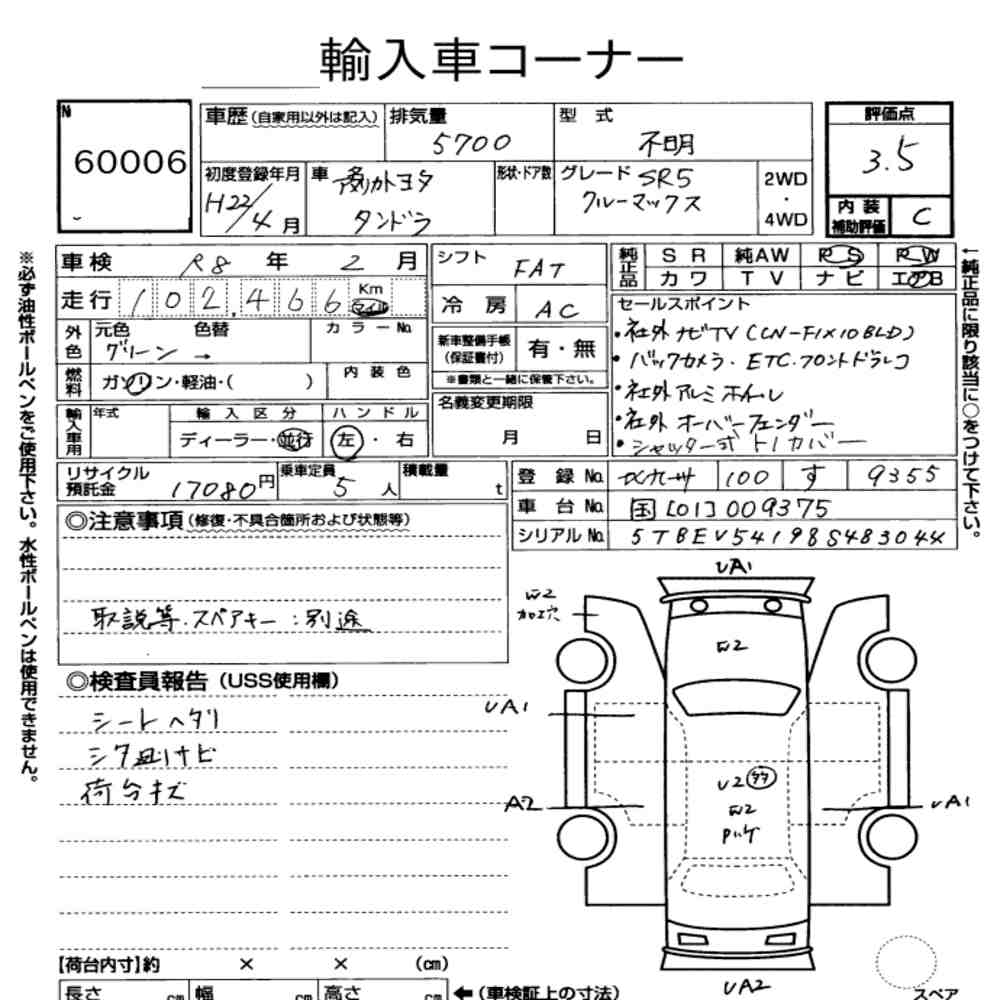 輸入車コーナー
№ 60006
車歴 (自家用以外は記入)
排気量 5700
型式 不明
評価点 3.5
初度登録年月 H22/4月
車名 アメリカトヨタ タンドラ
形状・ドア数
グレード SR5 クルーマックス
2WD ・ 4WD
内装補助評価 C
車検 R8年 2月
走行 102,466 Km マイル
シフト FAT
冷房 AC
純正品 SR 純AW PS PW
カワ TV ナビ エアB
外色 元色 グリーン → 色替 カラーNo.
燃料 ガソリン・軽油・( )
内装色
新車整備手帳(保証書付) 有・無
※書類と一緒に保管下さい。
セールスポイント
・社外ナビTV(CN-F1X10BLD)
・バックカメラ・ETC・フロントドラレコ
・社外アルミホイール
・社外オーバーフェンダー
・シャッター式トノカバー
輸入車用 年式
輸入区分 ディーラー・並行
ハンドル 左・右
名義変更期限 月 日
リサイクル預託金 17080円
乗車定員 5人
積載量 t
登録No. 北九州 100 す 9355
車台No. 国[01]009375
シリアルNo. 5TBEV54198S483044
◎注意事項 (修復・不具合箇所および状態等)
取説等・スペアキー:別途
◎検査員報告 (USS使用欄)
シートヘタリ
シタ回サビ
荷台キズ
UA1
W2 加工穴
W2
UA1
U2
W2
A2
UA1
UA2
スペア
【荷台内寸】約 × × (cm)
長さ cm 幅 cm 高さ cm ←(車検証上の寸法)
※必ず油性ボールペンをご使用下さい。水性ボールペンは使用できません。
←純正品に限り該当に○をつけて下さい。